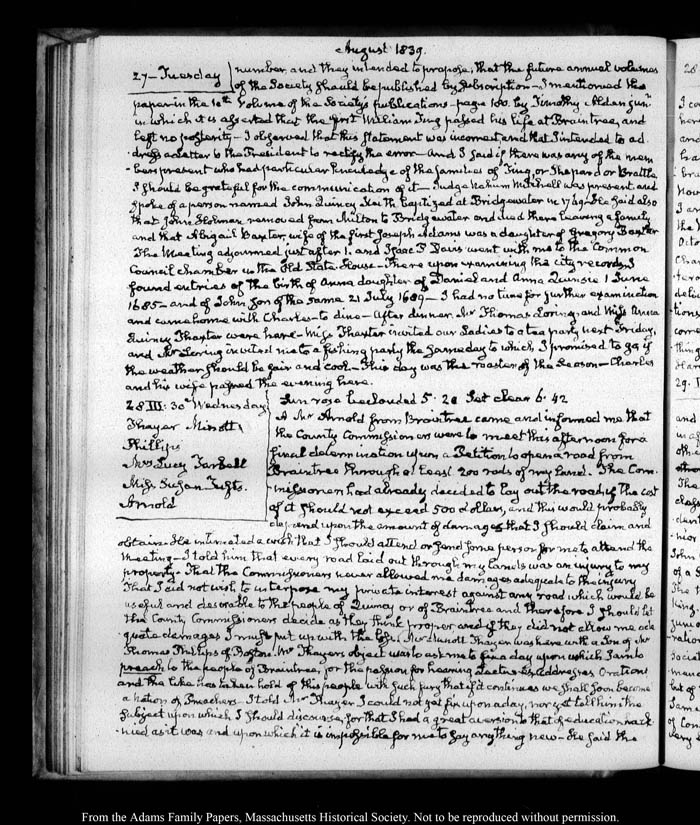 August 1839.
27 – Tuesday
number, and they intended to propose, that the future annual volumes
of the Society should be published by subscription – I mentioned the
paper in the 10th Volume of the Society's publications – page 180. by Timothy Alden junr.
in which it is asserted that the first William Ting passed his life at Braintree, and
left no posterity – I observed that this statement was incorrect, and that I intended to ad
dress a Letter to the President to rectify the error – And I said if there was any of the mem
bers present who had particular knowledge of the families of Ting, or Shepard or Brattle
I should be grateful for the communication of it – Judge Nahum Mitchell was present, and
spoke of a person named John Quincy Keith baptized at Bridgewater in 1749. He said also
that John Holman removed from Milton to Bridgewater and died there leaving a family
and that Abigail Baxter, wife of the first Joseph Adams was a daughter of Gregory Baxter
The Meeting adjourned just after 1. and Isaac P Davis went with me to the Common
Council chamber in the Old State House – There upon examining the city records I
found entries of the birth of Anna daughter of Daniel and Anna Quinsie 1 June
1685 – and of John son of the same 21 July 1689 – I had no time for further examination
and came home with Charles – to dine – After dinner Mr Thomas Loring, and Miss Anna
Quincy Thaxter were here – Miss Thaxter invited our Ladies to a tea party next Friday,
and Mr Loring invited me to a fishing party the same day to which I promised to go if
the weather should be fair and cool – This day was the roaster of the Season – Charles
and his wife passed the evening here.
28 III: 30 Wednesday
Thayer Minott
Phillips
Mrs Lucy Tarbell
Miss Susan Tufts.
Arnold
Sun rose beclouded 5. 20 Set clear 6. 42
A Mr Arnold from Braintree came and informed me that
the County Commissioners were to meet this afternoon for a
final determination upon a Petition to open a road from
Braintree through at least 200 rods of my Land. The Com
missioners had already decided to lay out the road if the cost
of it should not exceed 500 dollars, and this would probably
depend upon the amount of damages that I should claim and
obtain – He intimated a wish that I should attend or send some person for me to attend the
meeting – I told him that every road laid out through my Lands was an injury to my
property. That the Commissioners never allowed me damages adequate to the injury
That I did not wish to interpose my private interest against any road which would be
useful and desirable to the people of Quincy or of Braintree and therefore I should let
the County Commissioners decide as they think proper and if they did not allow me ade
quate damages I must put up with the loss. Mr Minott Thayer was here with a Son of Mr
Thomas Phillips of Boston. Mr Thayer's object was to ask me to fix a day upon which I am to
preach to the people of Braintree, for the passion for hearing Lectures, Addresses Orations
and the like has taken hold of this people with such fury that if it continues we shall soon become
a nation of Preachers. I told Mr Thayer I could not yet fix upon a day, nor yet tell him the
subject upon which I should discourse, for that I had a great aversion to that of education
as it was and upon which it is impossible for me to say any thing new – He said the
From the Adams Family Papers, Massachusetts Historical Society. Not to be reproduced without permission.